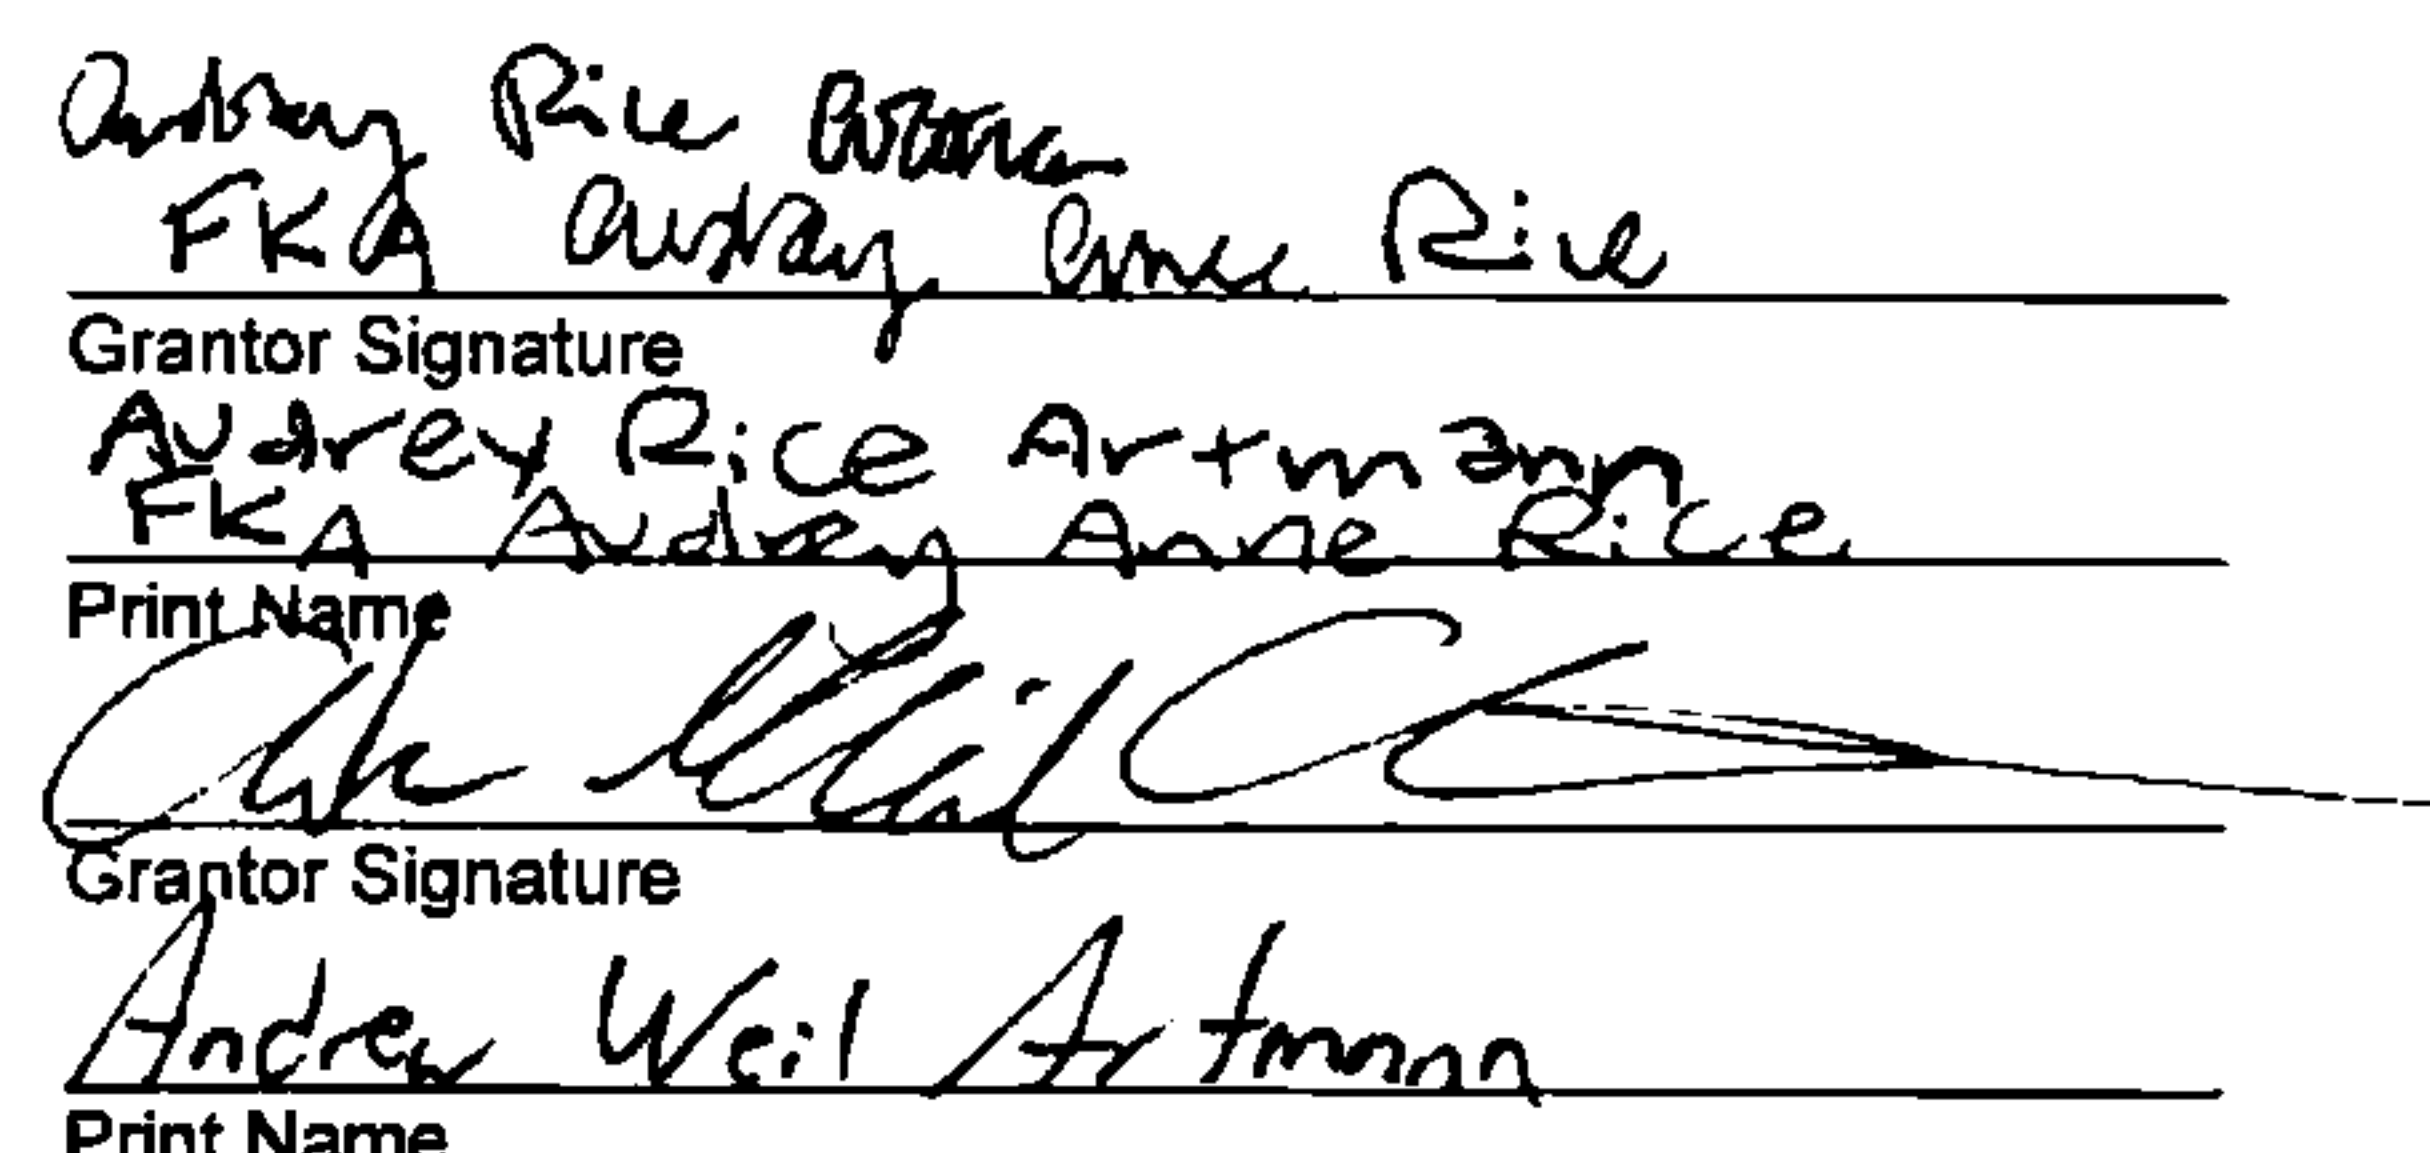 Audrey Rice Artmann
FKA Audrey Anne Rice
Grantor Signature
Audrey Rice Artmann
FKA Audrey Anne Rice
Print Name
Grantor Signature
Andrew Weil Artmann
Print Name